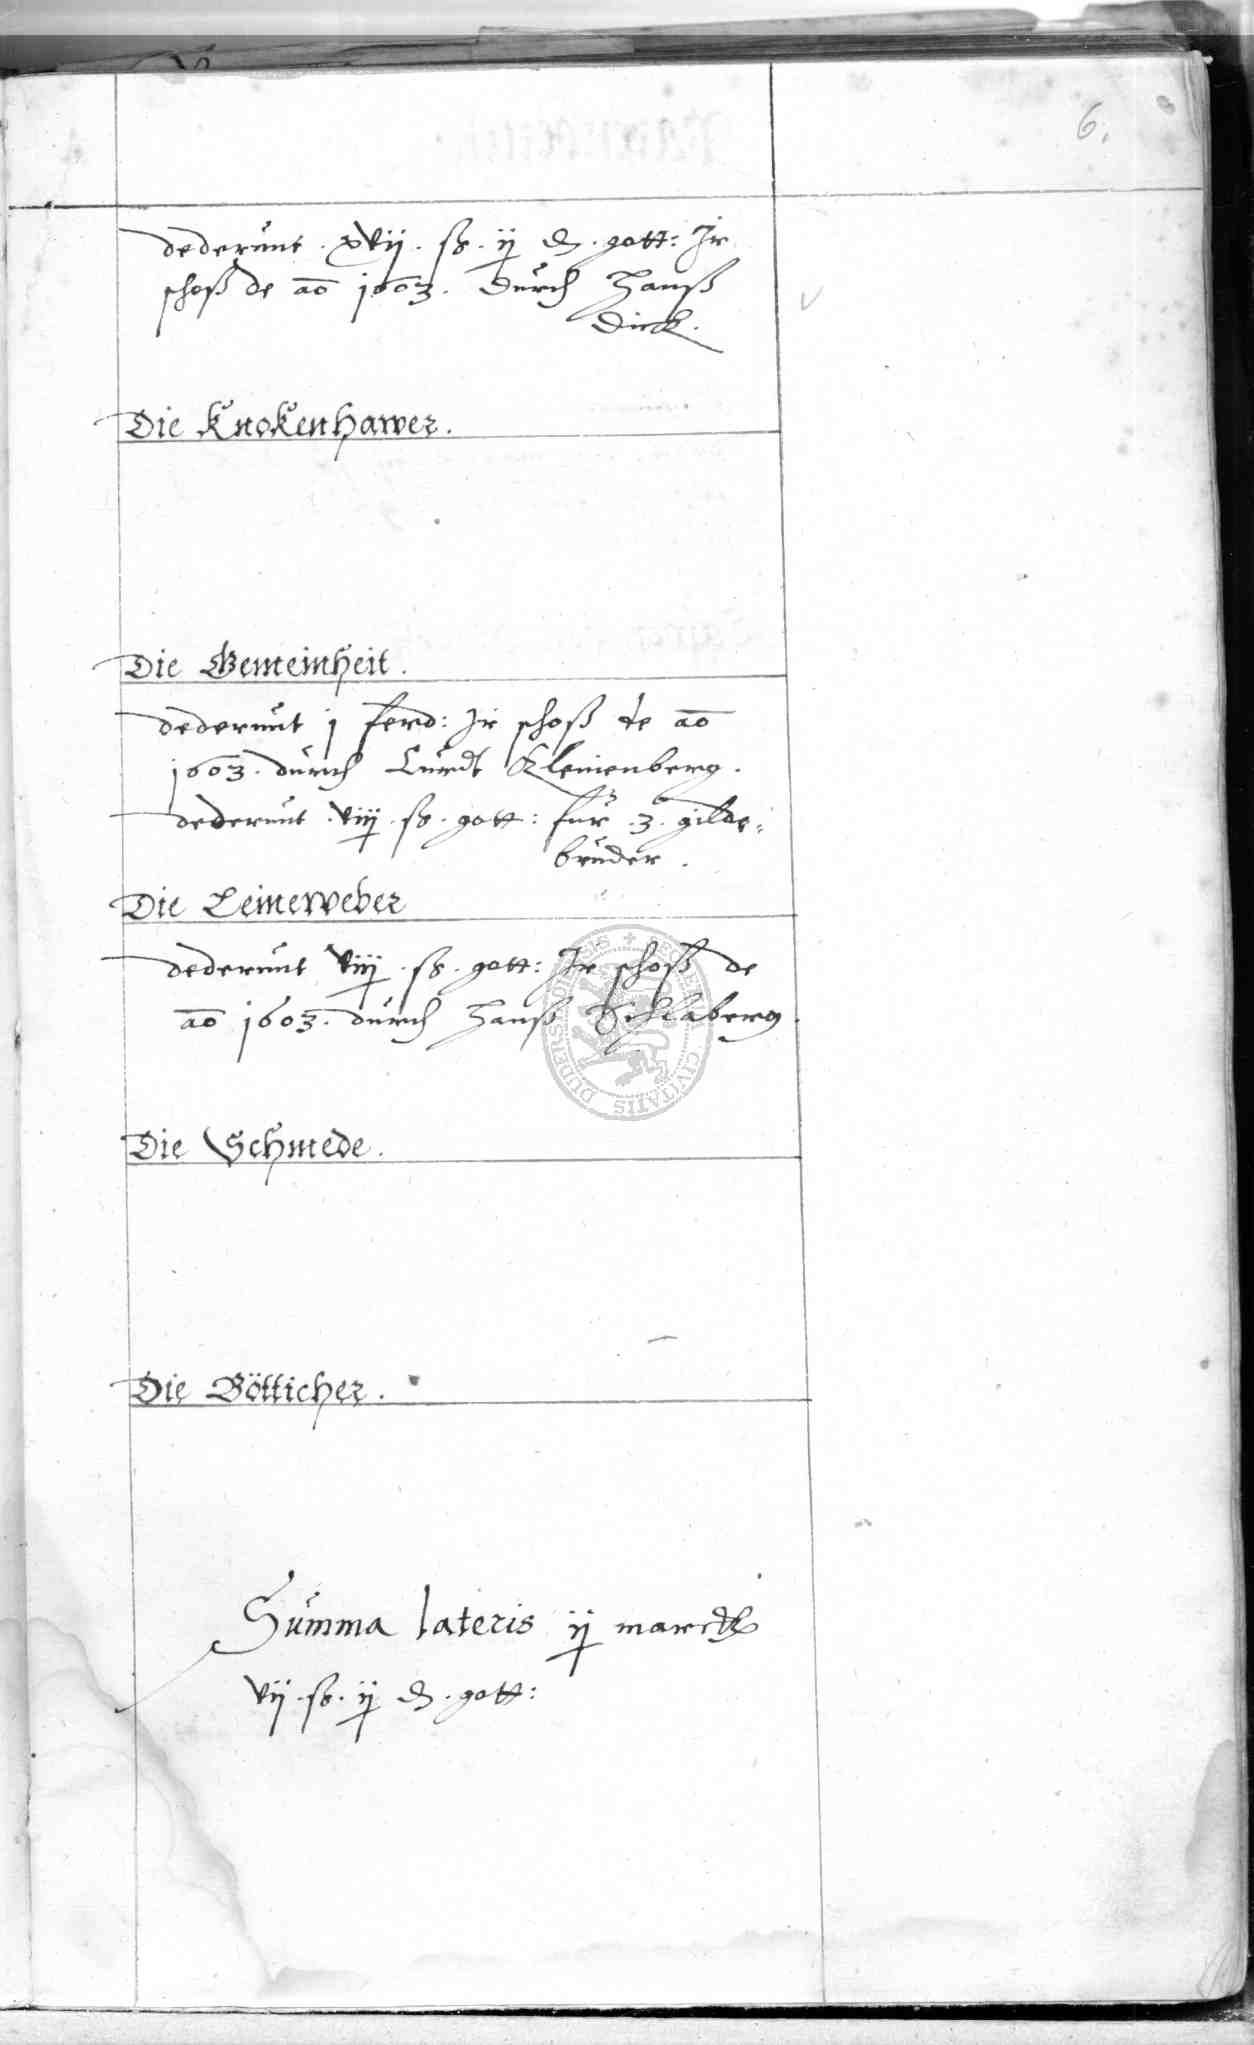 6.
dederunt . xvij . ß . ij ₰ . gott: Ir
schoß de ao 1603 . Durch Hanß
Dirck .
Die Knokenhawer .
Die Gemeinheit .
dederunt j ferd: Ir schoß de ao
1603 . durch Curdt Kleinenberg .
dederunt . viij . ß . gott: für . 3 . gilde-
brüder .
Die Leineweber
dederunt viij . ß . gott: Ir schoß de
ao 1603 . durch Hanß Schlaberg .
Die Schmede .
Die Bötticher .
Summa lateris ij marck
vij . ß . ij ₰ . gott: